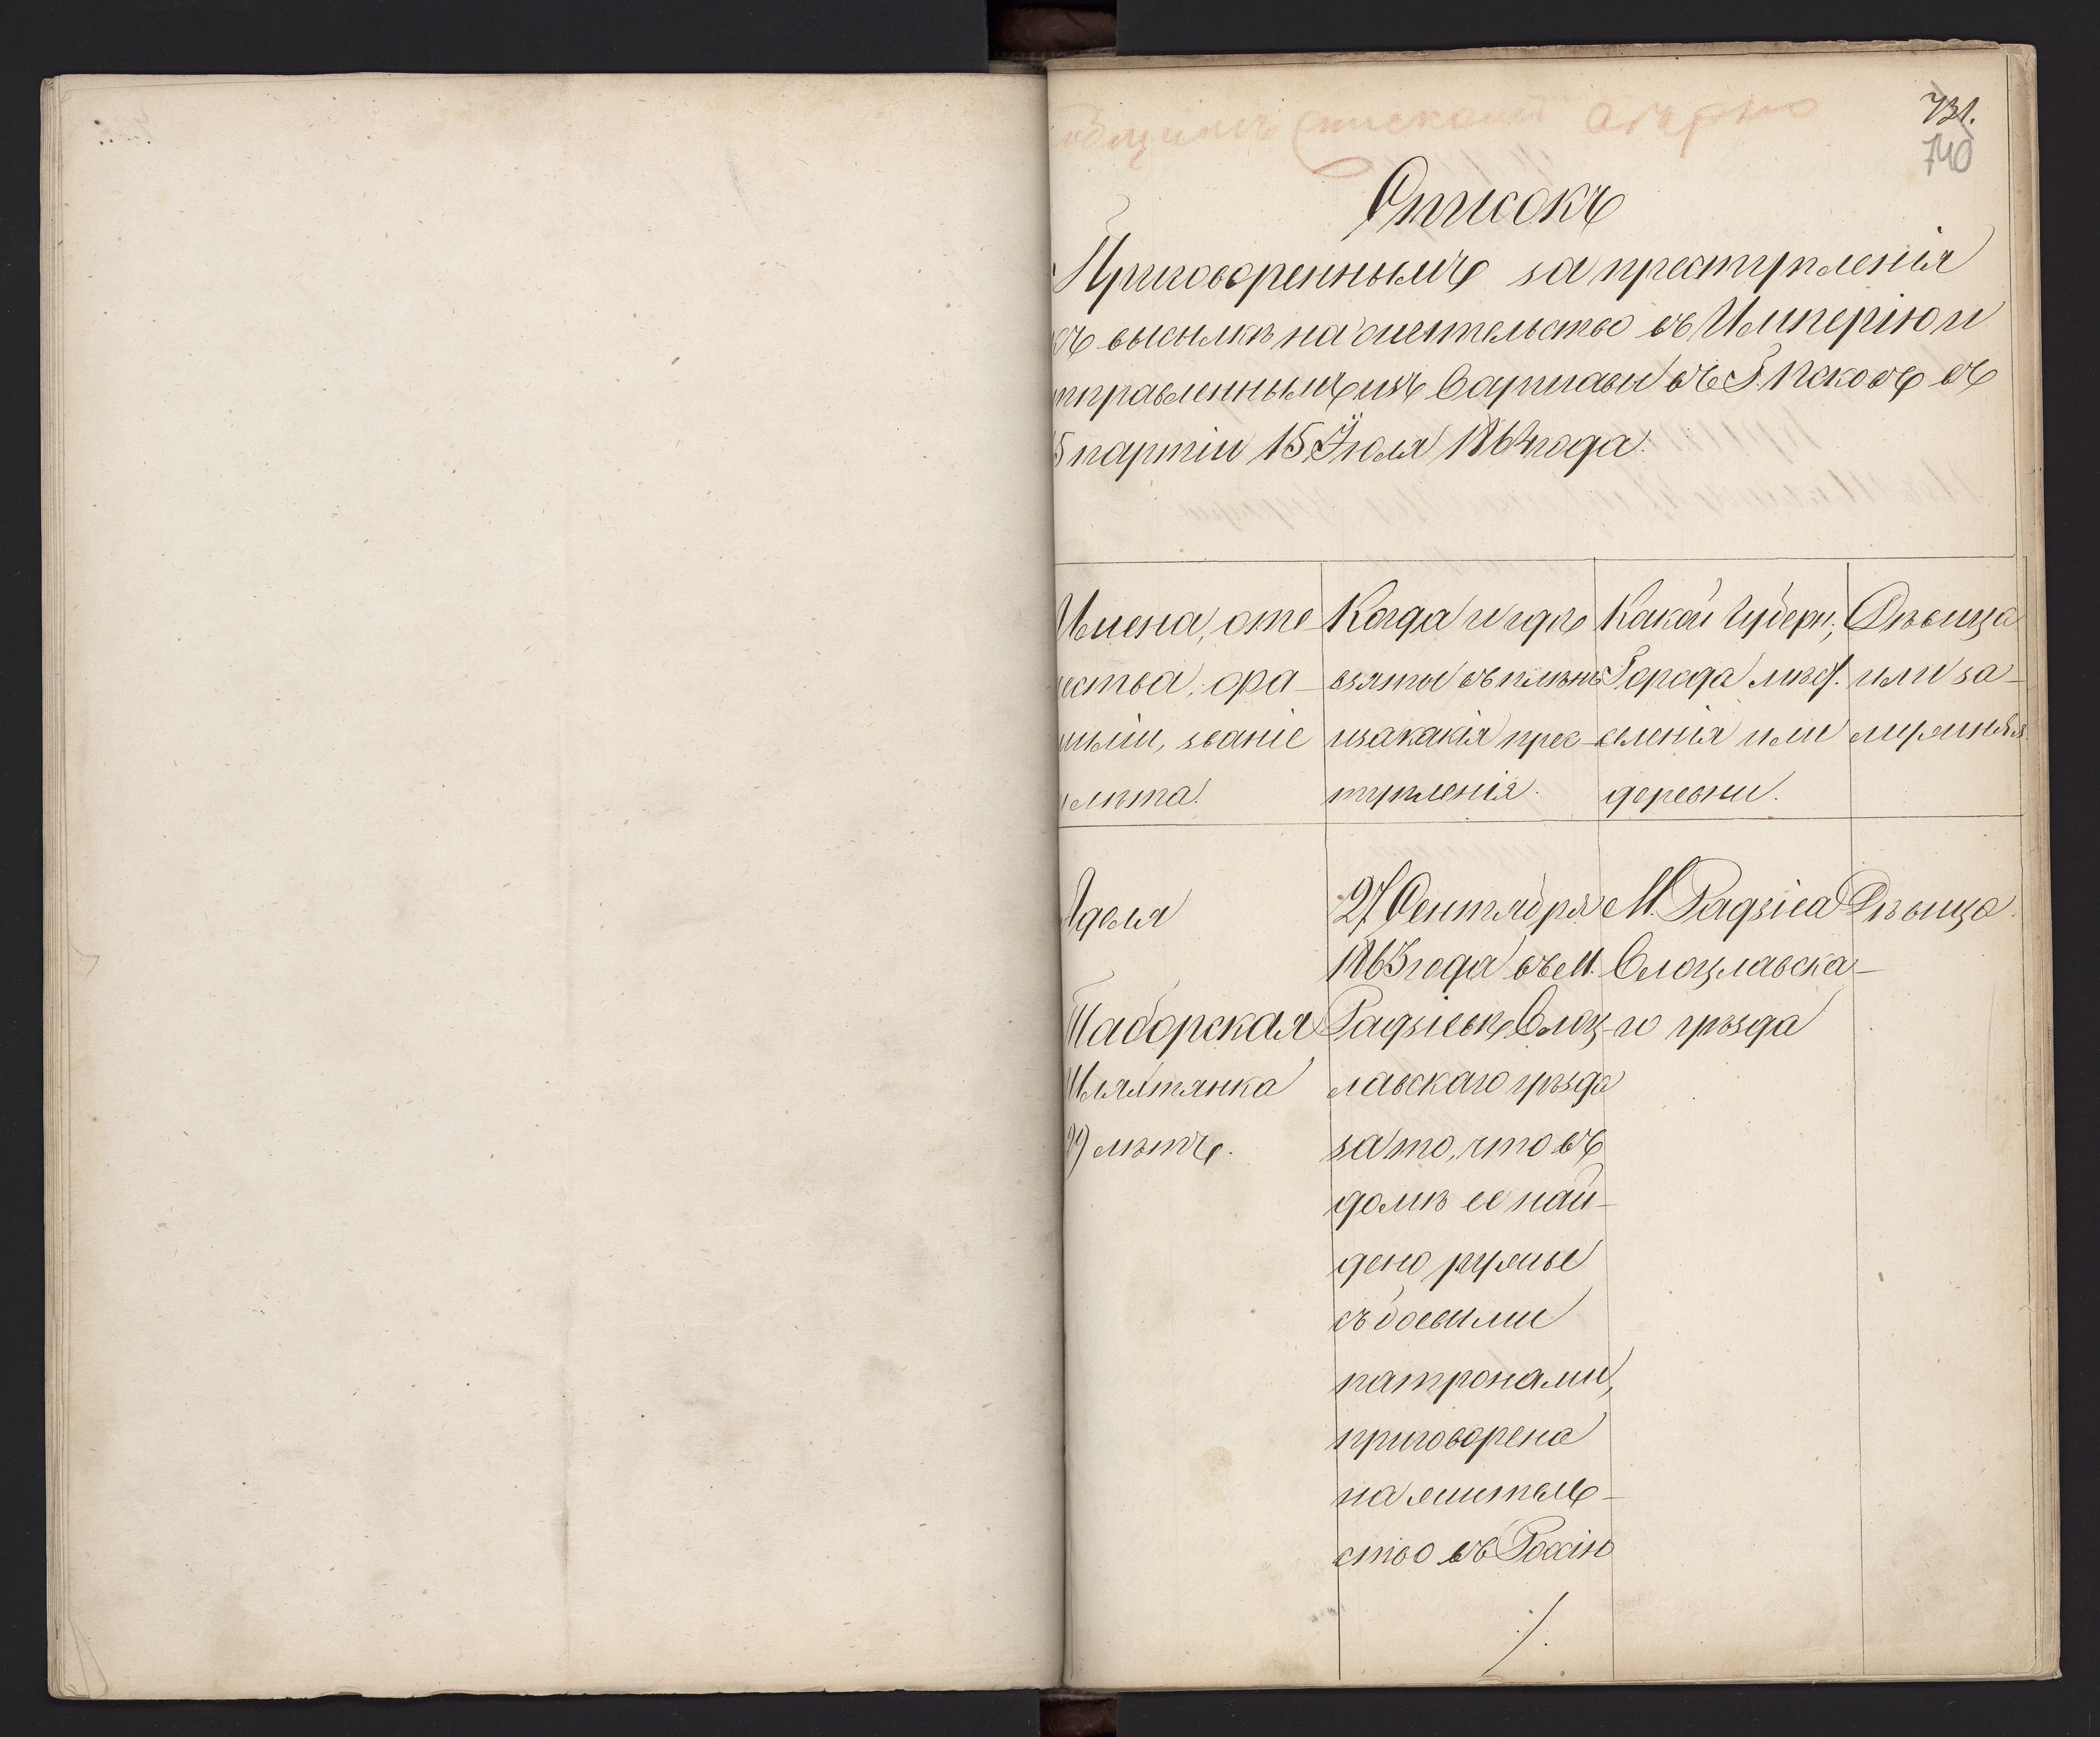 731.
740
Списокъ
Приговореннымъ за преступленія
къ высылкѣ на жительство въ Имперію и
отправленнымъ изъ Варшавы въ Г. Псковъ въ
5 партіи 15 Іюля 1864 года.
Имена, оте-
чества, фа-
миліи, званіе
и лѣта.
Когда и гдѣ
взяты въ плѣнъ
и за какія прес-
тупленія.
Какой Губерн,
Города мѣс.
селенія или
деревни.
Дѣвица
или за-
мужняя.
Аделя
Таборская
Шляхтянка
лѣтъ.
27 Сентября
1863 года въ М.
Радзіевѣ Влоц-
лавскаго уѣзда
за то, что въ
домѣ ее най-
дено ружье
съ боевыми
патронами,
приговорена
на житель-
ство въ Россію
М. Радзіева
Влоцлавска-
го уѣзда
Дѣвица.